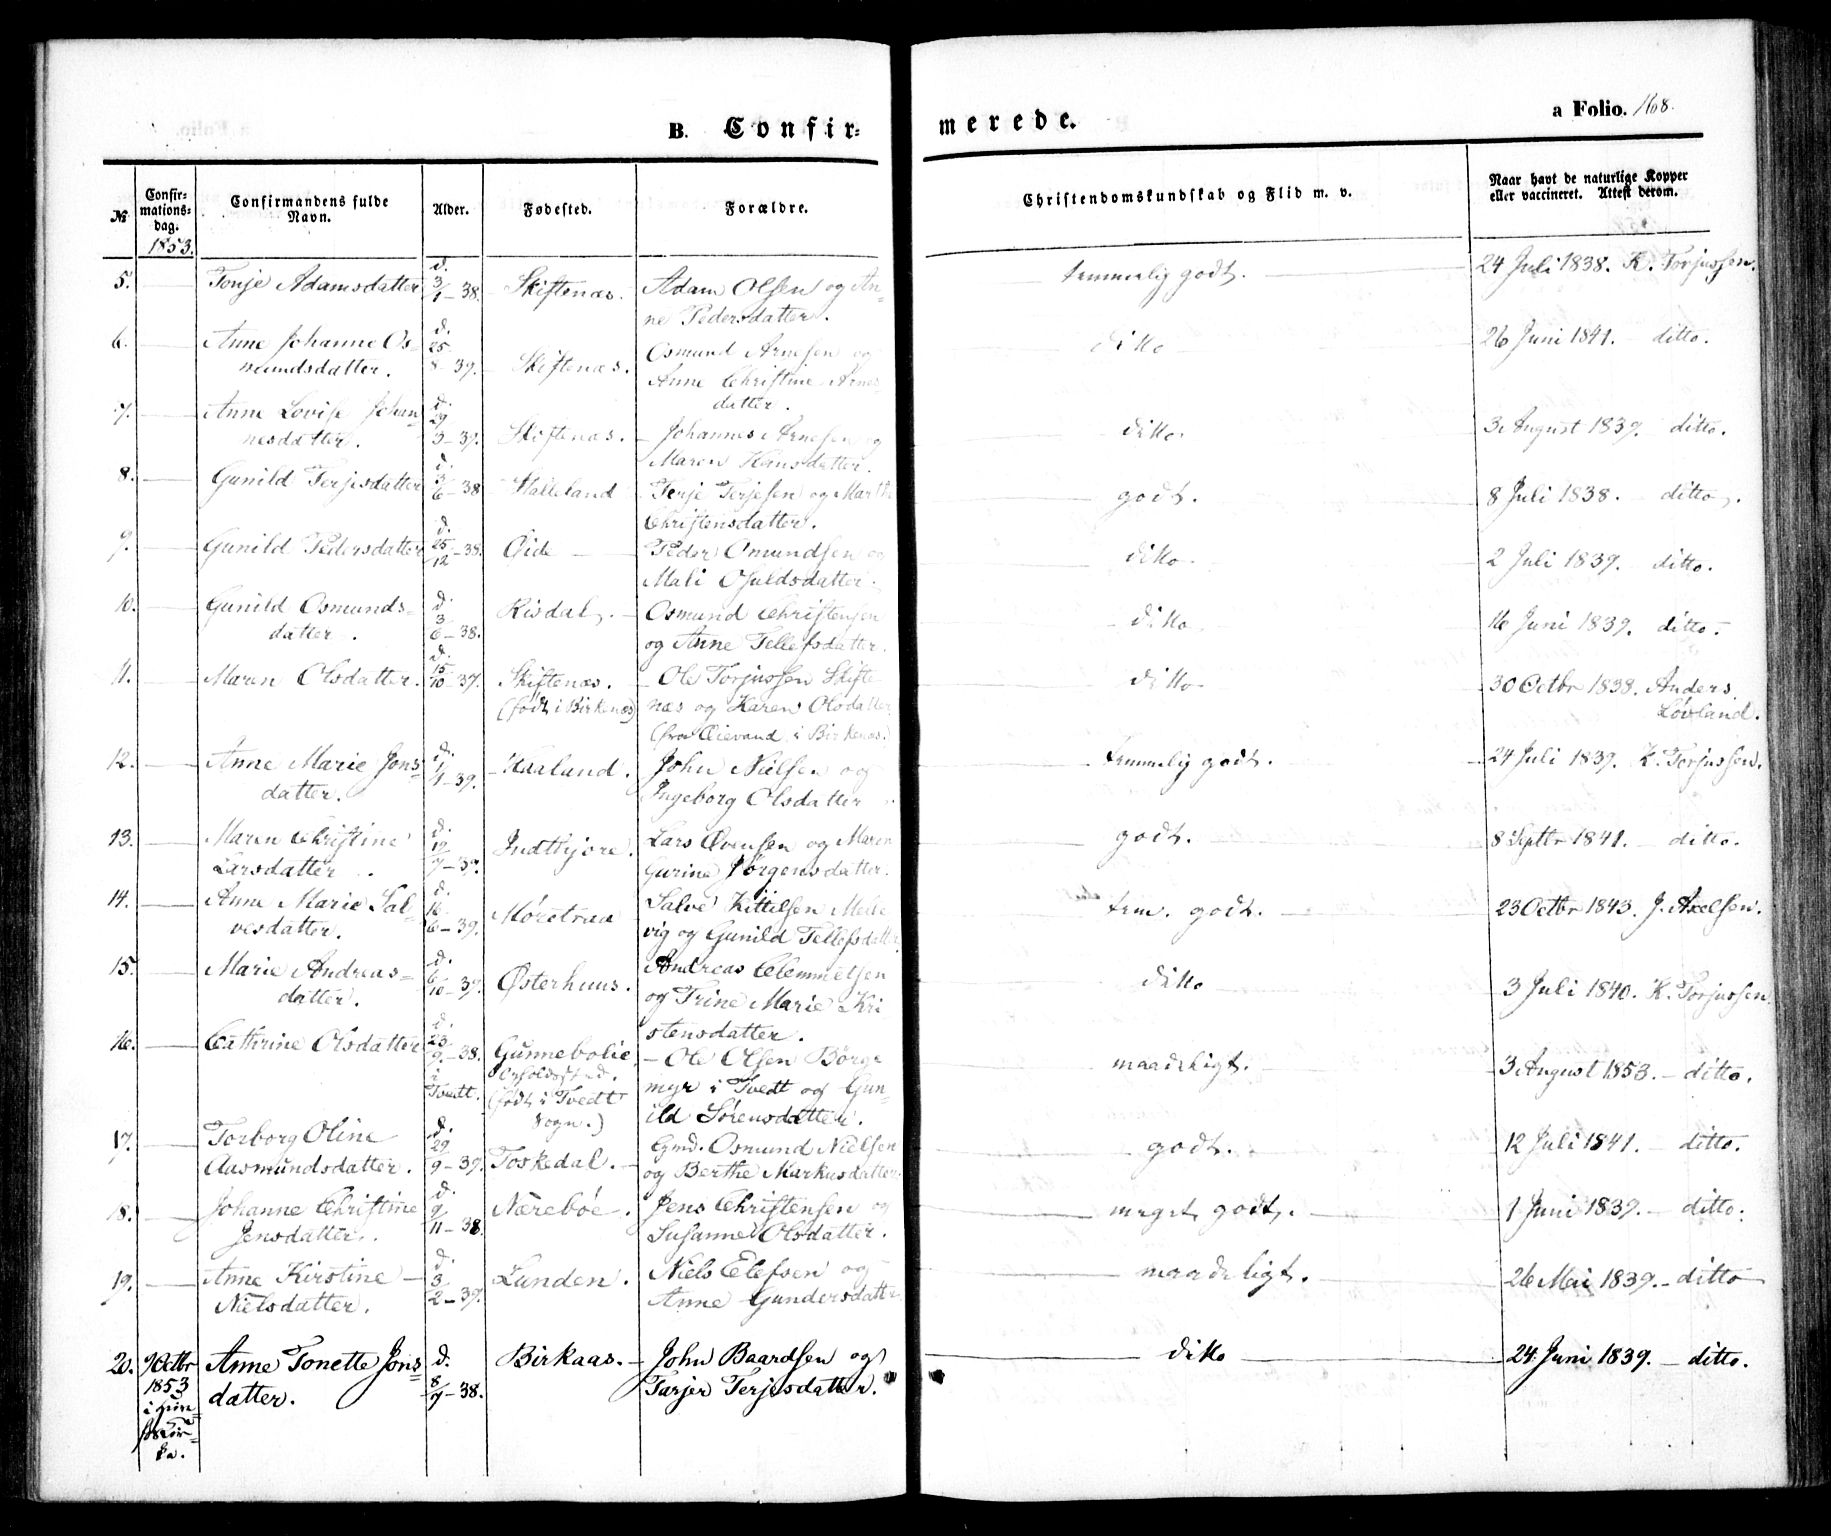 B. Confir- merede.
a Folio. 168.
№ Confir- mations- dag. Confirmandens fulde Navn. Alder. Fødested. Forældre. Christendomskundskab og Flid m. v. Naar havt de naturlige Kopper eller vaccineret. Attest derom.
1853.
5. Tonje Adamsdatter d. 3/1–38. Skiftenæs. Adam Olsen og An- temmelig godt. 24 Juli 1838. K. Torjussen.
ne Pedersdatter.
6. Anne Johanne Os- d. 25/8–39. Skiftenæs. Osmund Arnesen og ditto 26 Juni 1841. ditto.
mundsdatter. Anne Christine Arnes
datter.
7. Anne Lovise Johan- d. 29/3–39. Skiftenæs. Johannes Arnesen og ditto. 3 August 1839. ditto.
nesdatter. Maren Hansdatter.
8. Gunild Terjesdatter d. 3/6–38 Halleland Terje Terjesen og Marthe godt. 8 Juli 1838. ditto.
Christensdatter.
9. Gunild Pedersdatter d. 25/12–38. Eide Peder Omundsen og ditto. 2 Juli 1839. ditto.
Mali Osuldsdatter.
10. Gunild Osmunds- d. 3/6–38. Risdal. Osmund Christensen ditto 16 Juni 1839. ditto.
datter. og Anne Tellefsdatter.
11. Maren Olsdatter. d. 15/10–37. Skiftenæs. Ole Torjussen Skifte ditto 30 Octbr 1838. Anders
(født i Birkenæs) næs og Karen Olsdatter Løvland.
(fra Øievand i Birkenæs.)
12. Anne Marie Jons- d. 1/1–39. Kaalund. John Nielsen og temmelig godt. 24 Juli 1839. K. Torjussen.
datter. Ingeborg Olsdatter
13. Maren Christine d. 12/7–39. Indtbjore. Lars Evensen og Maren godt. 8 Septbr 1841. ditto.
Larsdatter. Gurine Jørgensdatter.
14. Anne Marie Sal- d. 16/6–39. Møretraa Salve Kittilsen Melle tem. godt. 23 Octbr 1843. J. Axelsen.
vesdatter. vig og Gunild Tellefsdatter
15. Marie Andreas- d. 6/10–39. Østerhuus. Andreas Clemmetsen ditto 3 Juli 1840. K. Torjussen
datter. og Trine Marie Kri
stensdatter.
16. Cathrine Olsdatter d. 23/9–38. Gunnebolie Ole Olsen Børge maadeligt. 3 August 1853. ditto.
i Tvedt. Opholdssted. myr i Tvedt og Gun-
(født i Tvedt ild Sørensdatter.
Sogn.)
17. Torborg Oline d. 29/9–39. Toskedal. Gmd. Osmund Nielsen godt. 12 Juli 1841. ditto.
Aasmundsdatter. og Berthe Markusdatter.
18. Johanne Christine d. 9/11–38. Nærebøe. Jens Christensen og meget godt. 1 Juni 1839. ditto.
Jensdatter. Susanne Olsdatter.
19. Anne Kirstine d. 3/2–39. Lunden. Niels Elefsen og maadeligt. 26 Mai 1839. ditto
Nielsdatter. Anne Gundersdatter
20. 9 Octbr Anne Tonette Jons- d. 8/9–38. Birkaas. John Baardsen og ditto 24 Juni 1839. ditto.
1853 datter. Tarjer Terjesdatter.